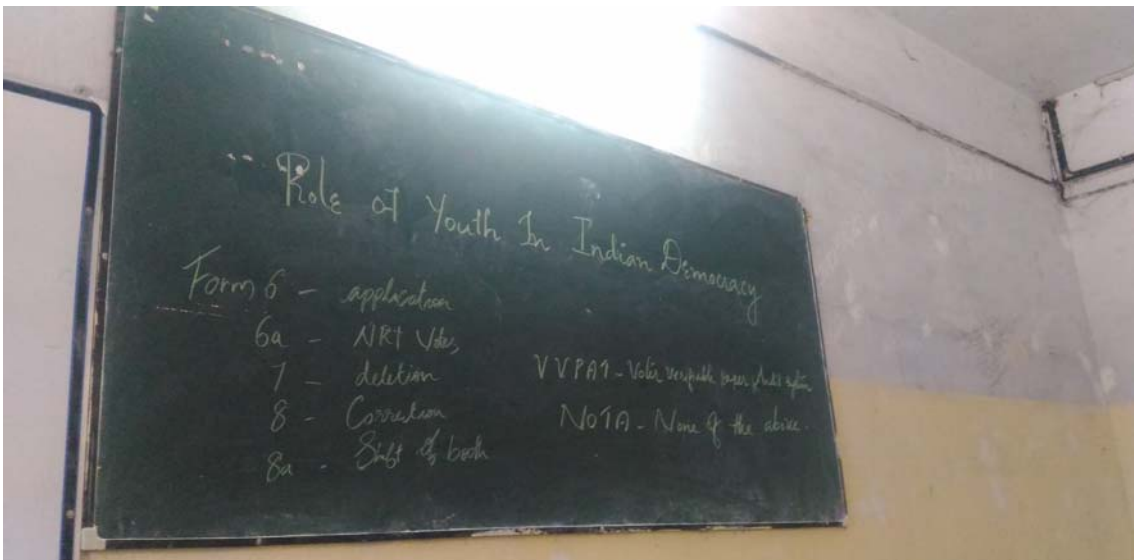 Role of Youth In Indian Democracy
Form 6 - application
6a - NRI Votes
7 - deletion
8 - Correction
8a - Shift of booth
VVPAT - Voter verifiable paper Audit
NOTA - None of the above.